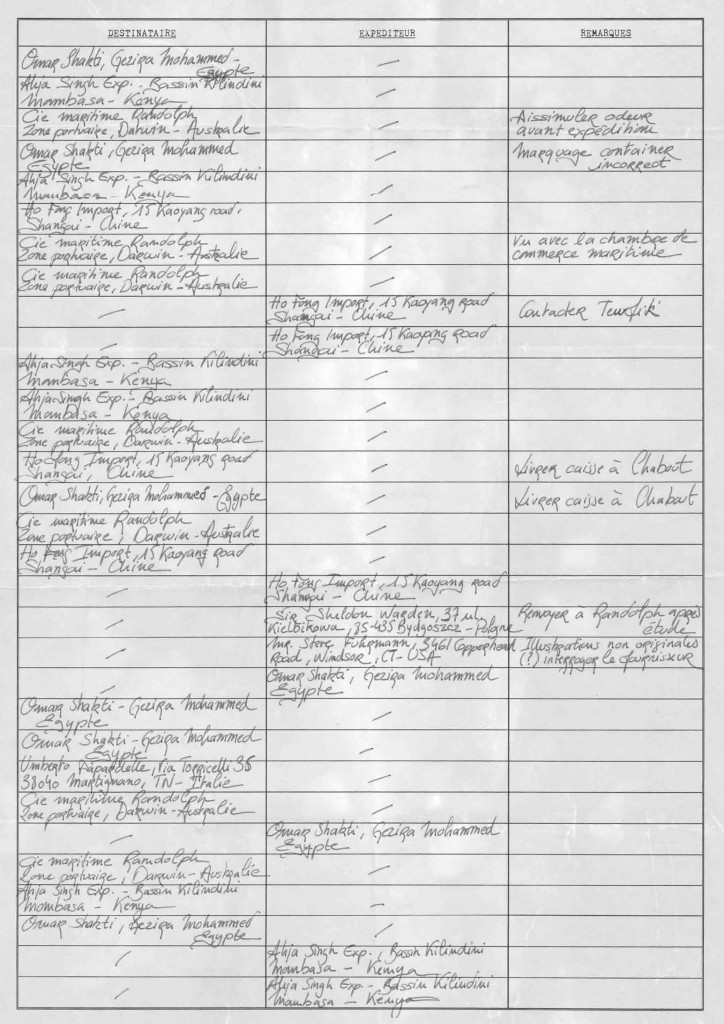 DESTINATAIRE EXPEDITEUR REMARQUES
Omar Shakti, Gezira Mohammed -
Egypte
Ahja Singh Exp. - Bassin Kilindini
Mombasa - Kenya
Cie maritime Randolph
Zone portuaire, Darwin - Australie
Dissimuler odeur
avant expédition
Omar Shakti, Gezira Mohammed
Egypte
Marquage container
incorrect
Ahja Singh Exp. - Bassin Kilindini
Mombasa - Kenya
Ho Fong Import, 15 Kaoyang road,
Shangai - Chine
Cie maritime Randolph
Zone portuaire, Darwin - Australie
Vu avec la chambre de
commerce maritime
Cie maritime Randolph
Zone portuaire, Darwin - Australie
Ho Fong Import, 15 Kaoyang road
Shangai - Chine
Contacter Tewfik
Ho Fong Import, 15 Kaoyang road
Shangai - Chine
Ahja Singh Exp. - Bassin Kilindini
Mombasa - Kenya
Ahja Singh Exp. - Bassin Kilindini
Mombasa - Kenya
Cie maritime Randolph
Zone portuaire, Darwin - Australie
Ho Fong Import, 15 Kaoyang road
Shangai, Chine
Livrer caisse à Chabout
Omar Shakti, Gezira Mohammed - Egypte
Livrer caisse à Chabout
Cie maritime Randolph
Zone portuaire, Darwin - Australie
Ho Fong Import, 15 Kaoyang road
Shangai - Chine
Ho Fong Import, 15 Kaoyang road
Shangai - Chine
Sir Sheldon Warden, 37 ul
Kielbikowa, 85-435 Bydgoszcz - Pologne
Renvoyer à Randolph après
étude
Mr. Steve Fuhrmann, 3461 Copperhead
Road, Windsor, CT - USA
Illustrations non originales
(?) interroger le fournisseur
Omar Shakti, Gezira Mohammed
Egypte
Omar Shakti - Gezira Mohammed
Egypte
Omar Shakti - Gezira Mohammed
Egypte
Umberto Papardelle, via Torricelli 38
38040 Martignano, TN - Italie
Cie maritime Randolph
Zone portuaire, Darwin - Australie
Omar Shakti, Gezira Mohammed
Egypte
Cie maritime Randolph
Zone portuaire, Darwin - Australie
Ahja Singh Exp. - Bassin Kilindini
Mombasa - Kenya
Omar Shakti, Gezira Mohammed
Egypte
Ahja Singh Exp., Bassin Kilindini
Mombasa - Kenya
Ahja Singh Exp. - Bassin Kilindini
Mombasa - Kenya